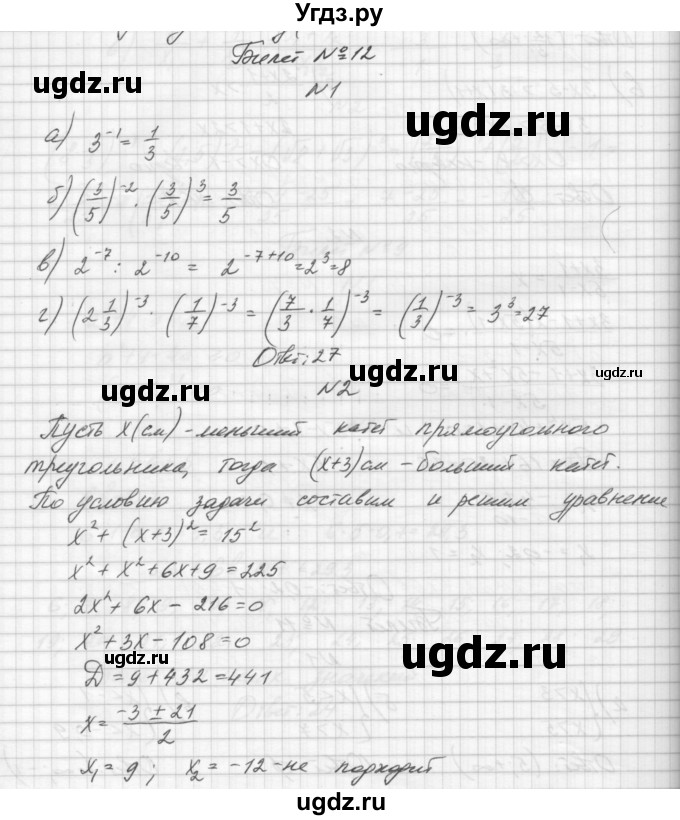 Угдз.ру
Билет №12
ugdz.ru
N1
ugdz.ru
а) 3⁻¹ = 1/3
б) (3/5)⁻² · (3/5)³ = 3/5
в) 2⁻⁷ : 2⁻¹⁰ = 2⁻⁷⁺¹⁰ = 2³ = 8
ugdz.ru
г) (2 1/3)⁻³ · (1/7)⁻³ = (7/3 · 1/7)⁻³ = (1/3)⁻³ = 3³ = 27
Ответ: 27
ugdz.ru
ugdz.ru
N2
Пусть х(см) - меньший катет прямоугольного
треугольника, тогда (х+3)см - больший катет.
По условию задачи составим и решим уравнение
x² + (x+3)² = 15²
ugdz.ru
x² + x² + 6x + 9 = 225
2x² + 6x - 216 = 0
x² + 3x - 108 = 0
ugdz.ru
ugdz.ru
Д = 9 + 432 = 441
x = (-3 ± 21)/2
ugdz.ru
x₁ = 9; x₂ = -12 - не подходит
ugdz.ru